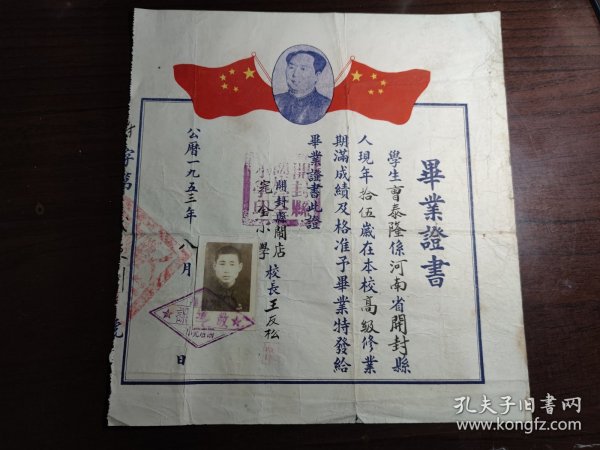 畢業證書
學生曹泰隆係河南省開封縣
人現年拾伍歲在本校高級修業
期滿成績及格准予畢業特發給
畢業證書此證
開封縣關店
完全小學
校長王反松
公曆一九五三年八月 日
字第
號
孔夫子旧书网
www.kongfz.com